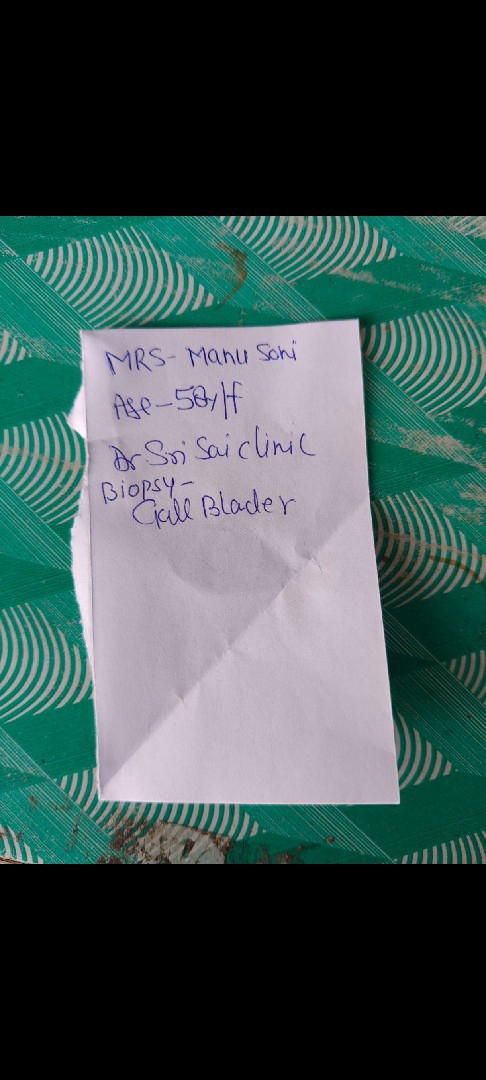 MRS- Manu Soni
Age - 50y/f
Dr Sri Sai clinic
Biopsy -
Gall Blader